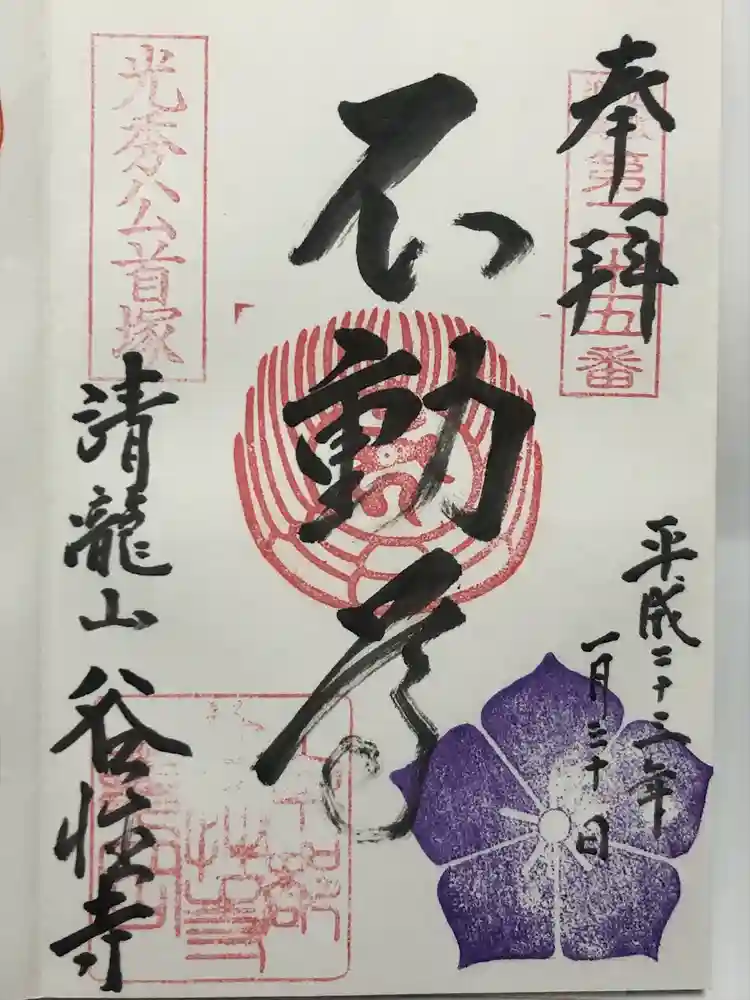 奉拝
第 十五番
平成二十三年
一月三十日
不動尊
光秀公首塚
清龍山 谷性寺